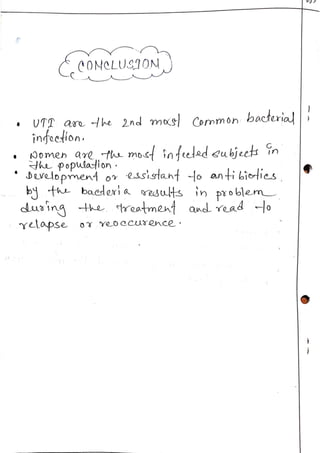 CONCLUSION
• UTI are the 2nd most Common bacterial
infection.
• Women are the most infected subjects in
the population.
• Development or essistant to antibiotics
by the bacteria results in problem
during the treatment and read to
relapse or reoccurence.